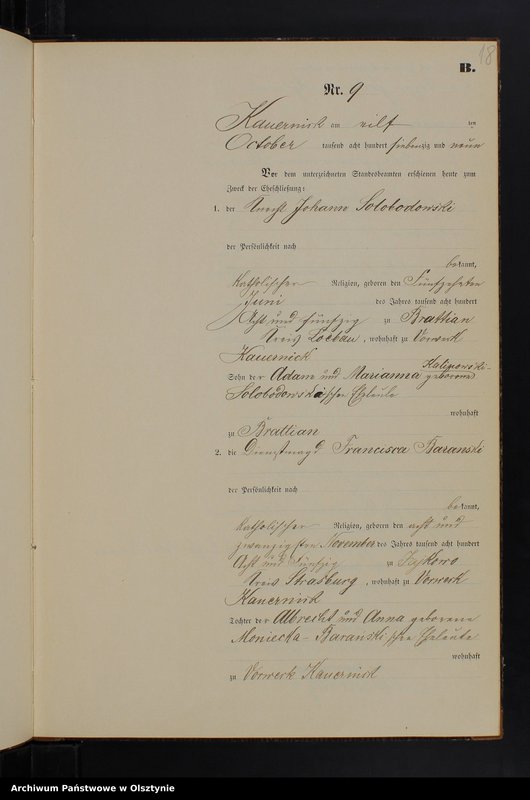 18
B.
Nr. 9
Kauernick am eilf ten
October tausend acht hundert siebenzig und neun
Vor dem unterzeichneten Standesbeamten erschienen heute zum
Zweck der Eheschließung:
1. der Knecht Johann Solobodowski
der Persönlichkeit nach
bekannt,
katholischer Religion, geboren den Fünfzehnten
Juni des Jahres tausend acht hundert
Acht und fünfzig zu Brattian
Kreis Loebau, wohnhaft zu Vorwerk
Kauernick
Kalinowski-
Sohn der Adam und Marianna geborene
Solobodowski'schen Eheleute
wohnhaft
zu Brattian
2. die Dienstmagd Francisca Baranski
der Persönlichkeit nach
bekannt,
katholischer Religion, geboren den acht und
zwanzigsten November des Jahres tausend acht hundert
Acht und Fünfzig zu
Kreis Strasburg, wohnhaft zu Vorwerk
Kauernick
Tochter der Albrecht und Anna geborene
Moniecka-Baranski'schen Eheleute
wohnhaft
zu Vorwerk Kauernick
Archiwum Państwowe w Olsztynie